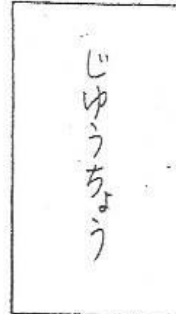 じゆうちょう